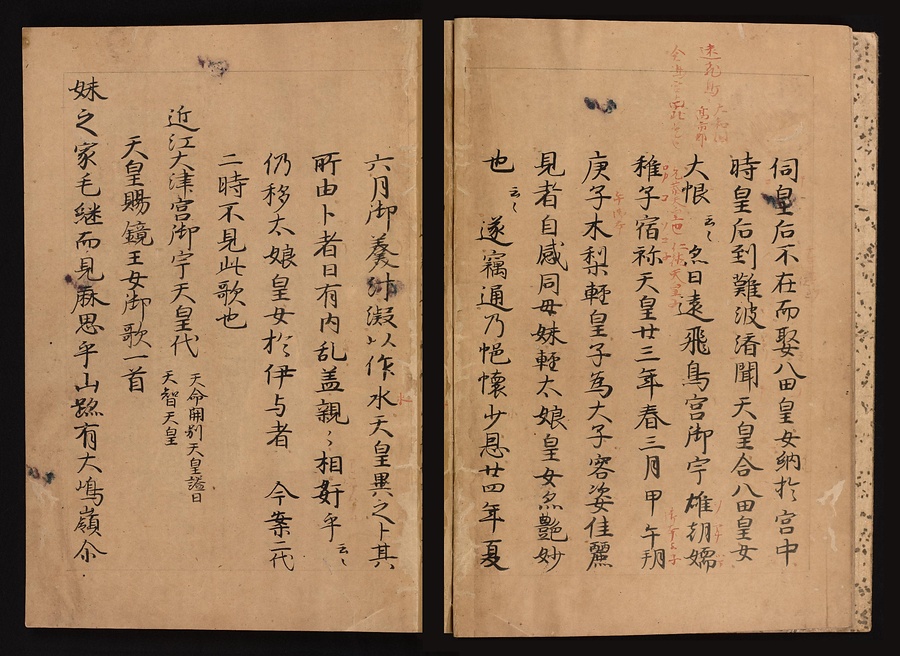 伺皇后不在而娶八田皇女納於宮中
時皇后到難波済聞天皇合八田皇女
大恨云〻亦曰遠飛鳥宮御宇雄朝嬬
稚子宿祢天皇廿三年春三月甲午朔
庚子木梨軽皇子為大子容姿佳麗
見者自感同母妹軽太娘皇女亦艶妙
也云〻遂竊通乃悒懐少息廿四年夏
六月御羹汁凝以作水天皇異之卜其
所由卜者曰有内乱盖親〻相奸乎云〻
仍移太娘皇女於伊与者 今案二代
二時不見此歌也
近江大津宮御宇天皇代 天命開別天皇謚曰
天智天皇
天皇賜鏡王女御歌一首
妹之家毛継而見麻思乎山跡有大嶋嶺尒